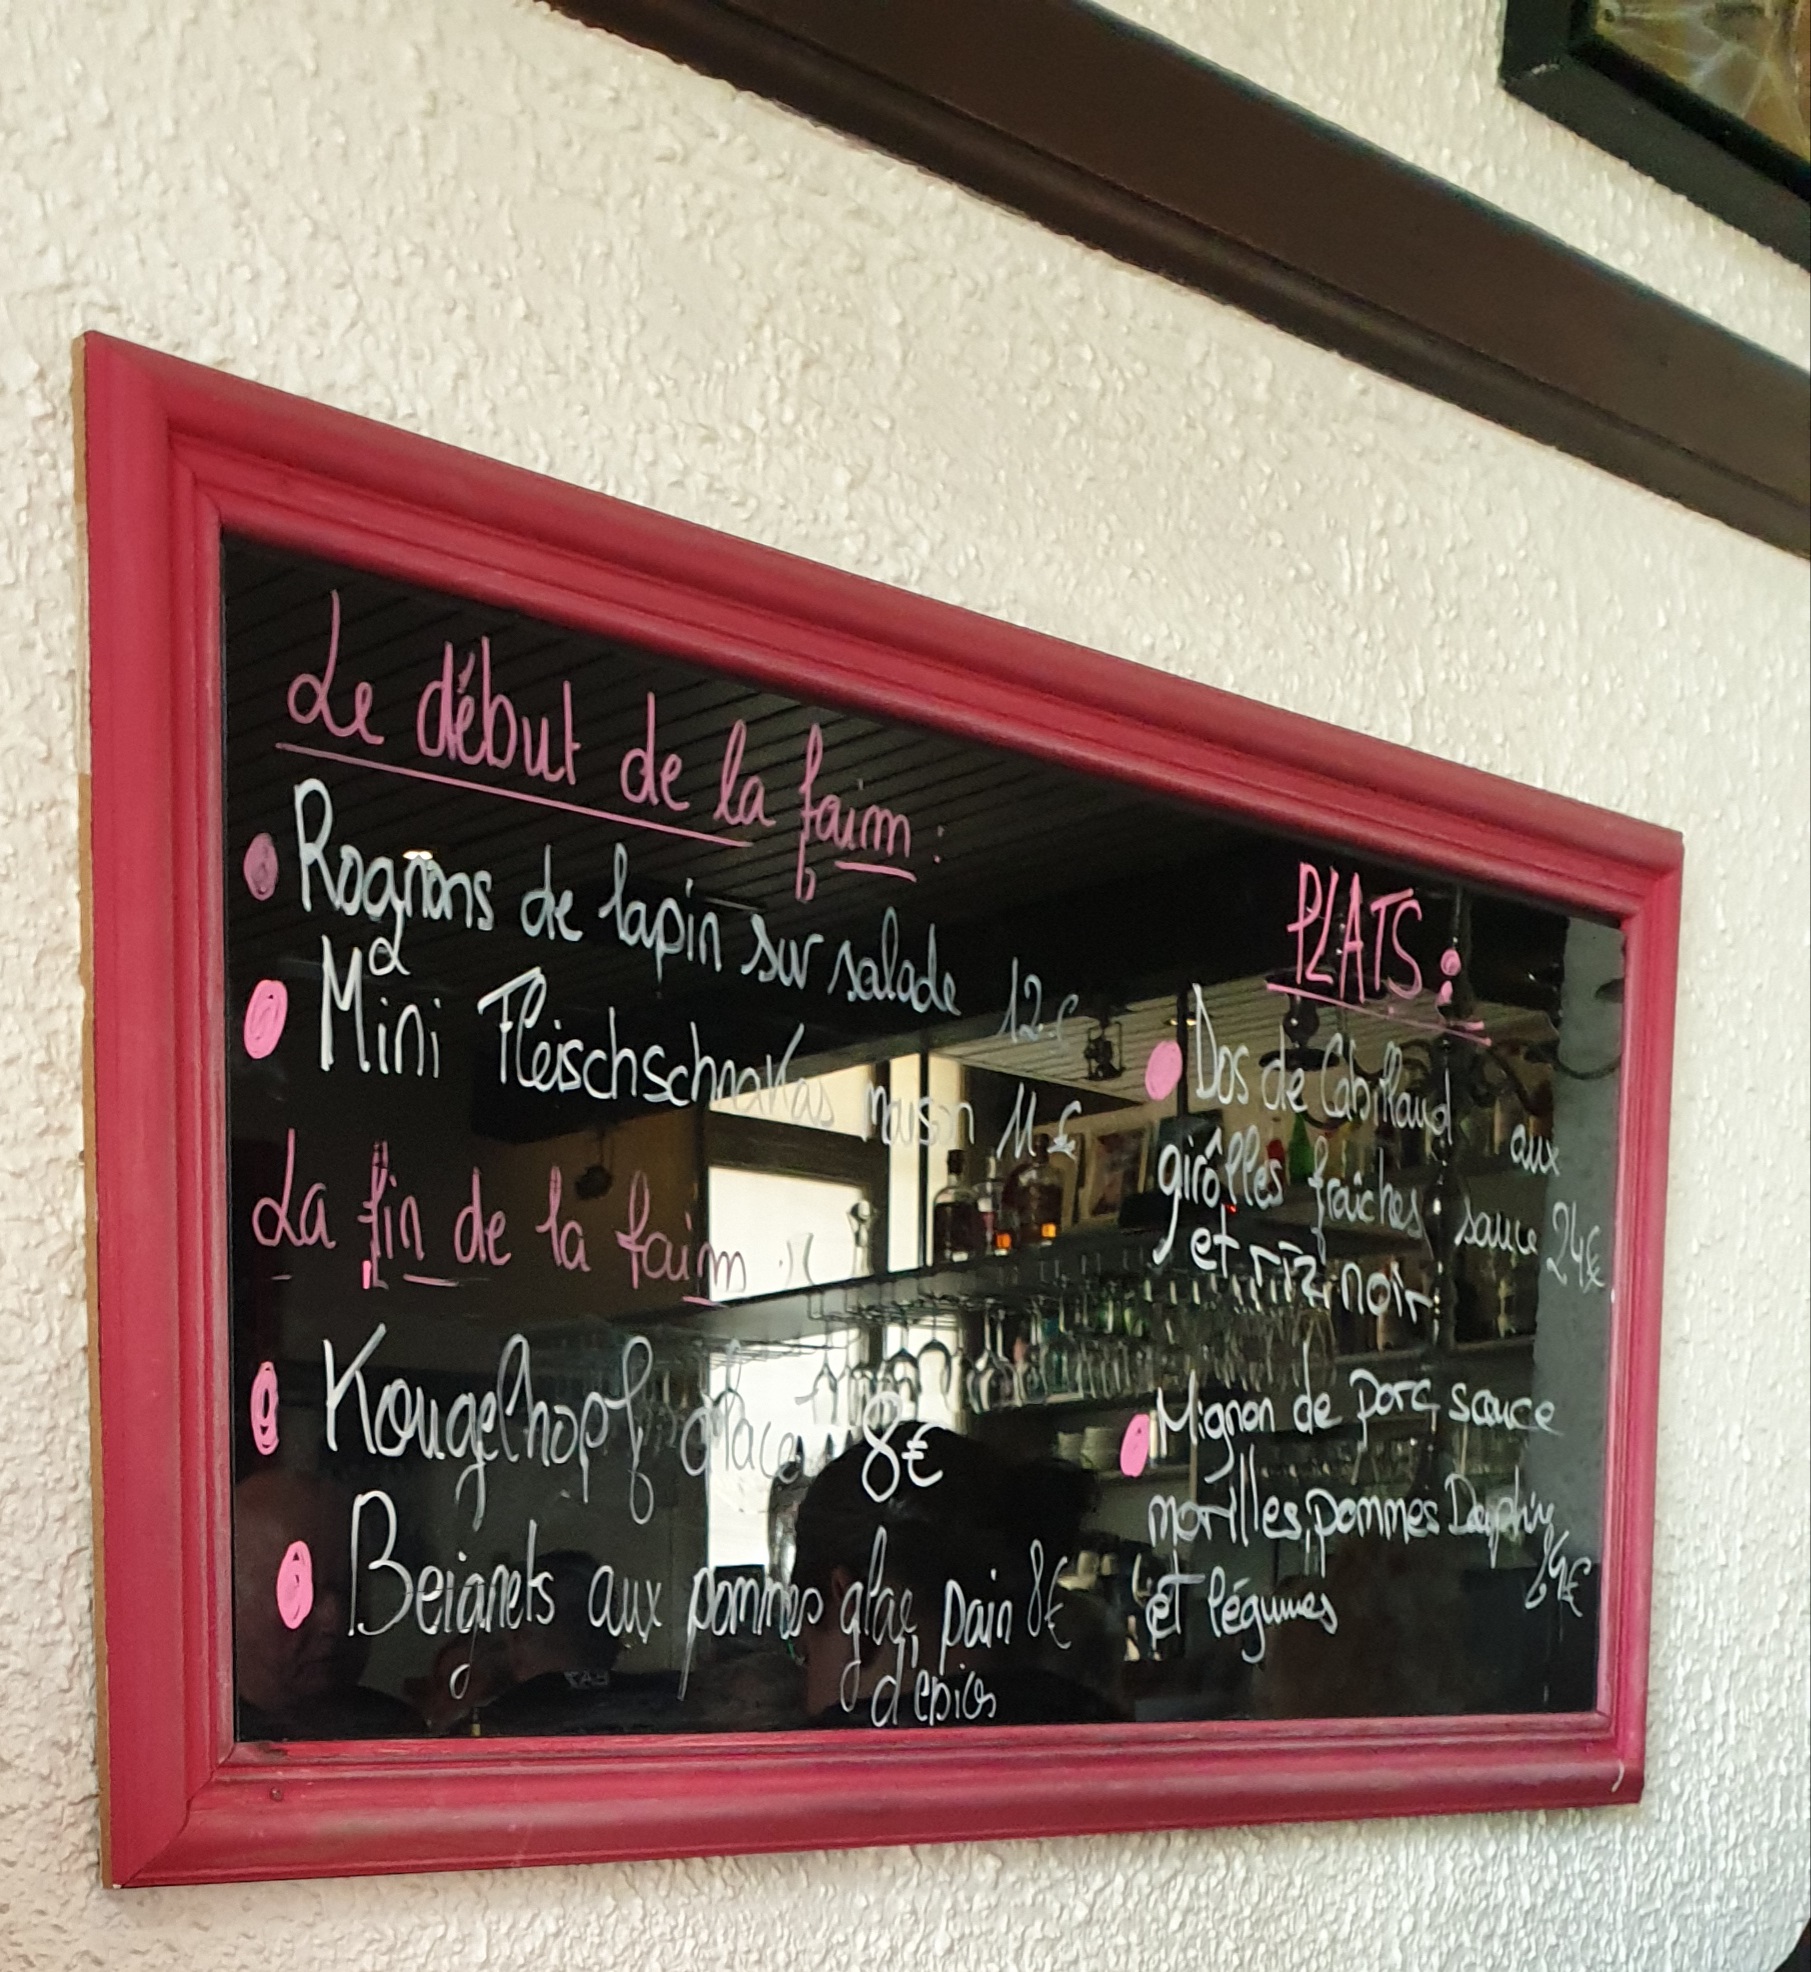 Le début de la faim :
Rognons de lapin sur salade 12€
Mini Fleischschnakas maison 11€
La fin de la faim :
Kougelhopf glacé 8€
Beignets aux pommes glac pain 8€
d'epices
PLATS :
Dos de Cabillaud aux
girôlles fraîches sauce 24€
et riz noir
Mignon de porc, sauce
morilles, pommes Dauphin
et légumes 24€